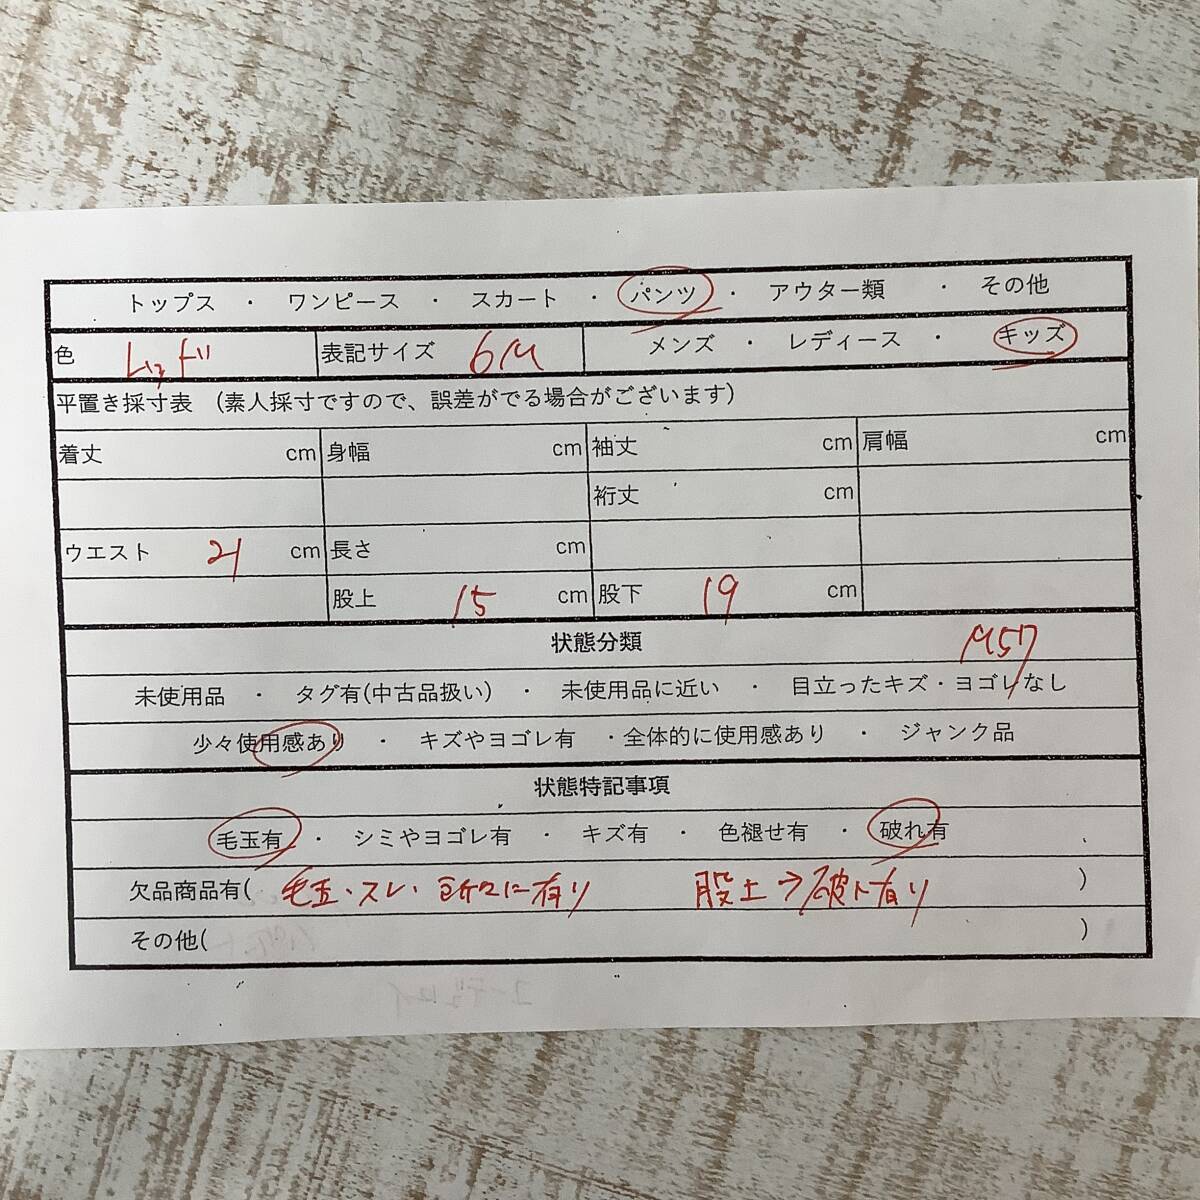 トップス ・ ワンピース ・ スカート ・ パンツ ・ アウター類 ・ その他
色 レッド 表記サイズ 6M メンズ ・ レディース ・ キッズ
平置き採寸表 (素人採寸ですので、誤差がでる場合がございます)
着丈 cm 身幅 cm 袖丈 cm 肩幅 cm
裄丈 cm
ウエスト 21 cm 長さ cm
股上 15 cm 股下 19 cm
状態分類
M57
未使用品 ・ タグ有(中古品扱い) ・ 未使用品に近い ・ 目立ったキズ・ヨゴレなし
少々使用感あり ・ キズやヨゴレ有 ・全体的に使用感あり ・ ジャンク品
状態特記事項
毛玉有 ・ シミやヨゴレ有 ・ キズ有 ・ 色褪せ有 ・ 破れ有
欠品商品有( 毛玉・スレ・所々に有り 股上→破れ有り )
その他( )